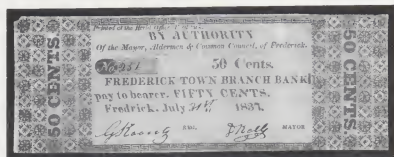 Printed at the
BY AUTHORITY
Of the Mayor, Aldermen & Common Council, of Frederick.
No. 951 50 Cents.
FREDERICK TOWN BRANCH BANK
pay to bearer. FIFTY CENTS.
Fredrick. July 21st 1837.
REG. MAYOR
50 CENTS
50 CENTS